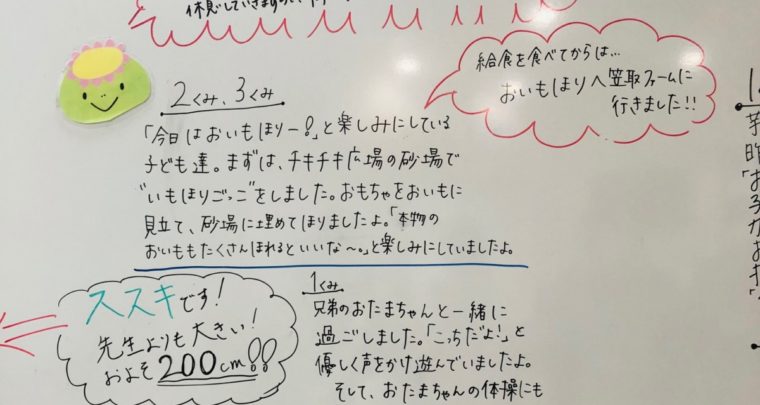 休息していきますの
給食を食べてからは…
おいもほりへ笠取ファームに
行きました!!
2くみ、3くみ
「今日はおいもほりー!」と楽しみにしている
子ども達。まずは、チキチキ広場の砂場で
"いもほりごっこ"をしました。おもちゃをおいもに
見立て、砂場に埋めてほりましたよ。「本物の
おいももたくさんほれるといいな〜。」と楽しみにしていましたよ。
ススキです!
先生よりも大きい!
およそ200cm!!
1くみ
兄弟のおたまちゃんと一緒に
過ごしました。「こっちだよ!」と
優しく声をかけ遊んでいましたよ。
そして、おたまちゃんの体操にも